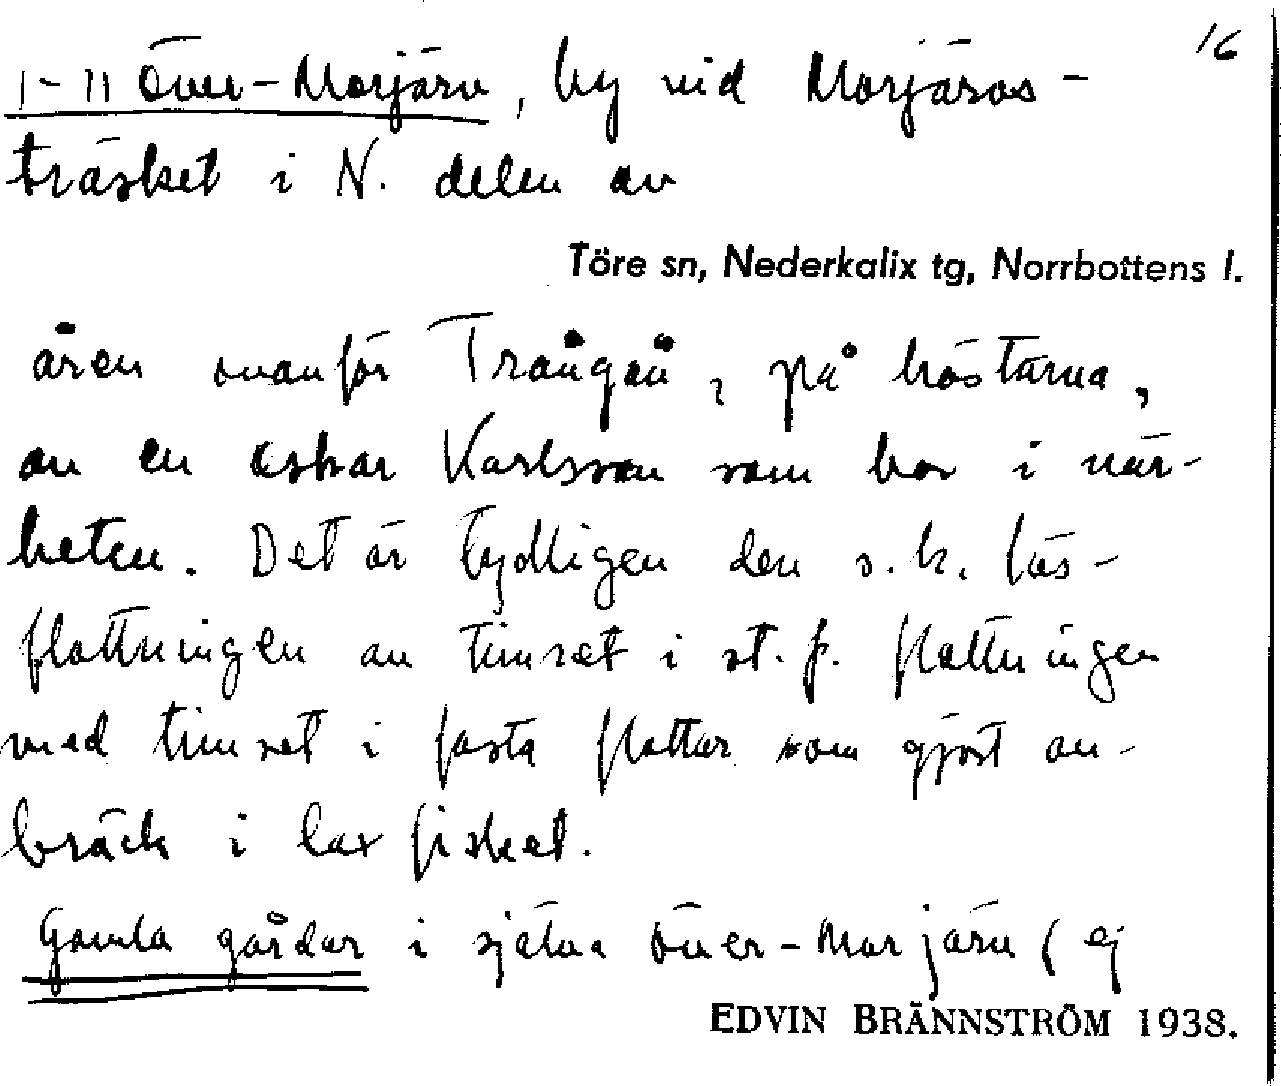 16
1-11 Över-Morjärv, by vid Morjärvs-
träsket i N. delen av
Töre sn, Nederkalix tg, Norrbottens l.
åren ovanför Trångån, på höstarna,
av en Oskar Karlsson som bor i när-
heten. Det är tydligen den s.k. lös-
flottningen av timret i st. f. flottningen
med timret i fasta flottar som gjort av-
bräck i laxfisket.
Gamla gårdar i själva Över-Morjärv (ej
EDVIN BRÄNNSTRÖM 1938.